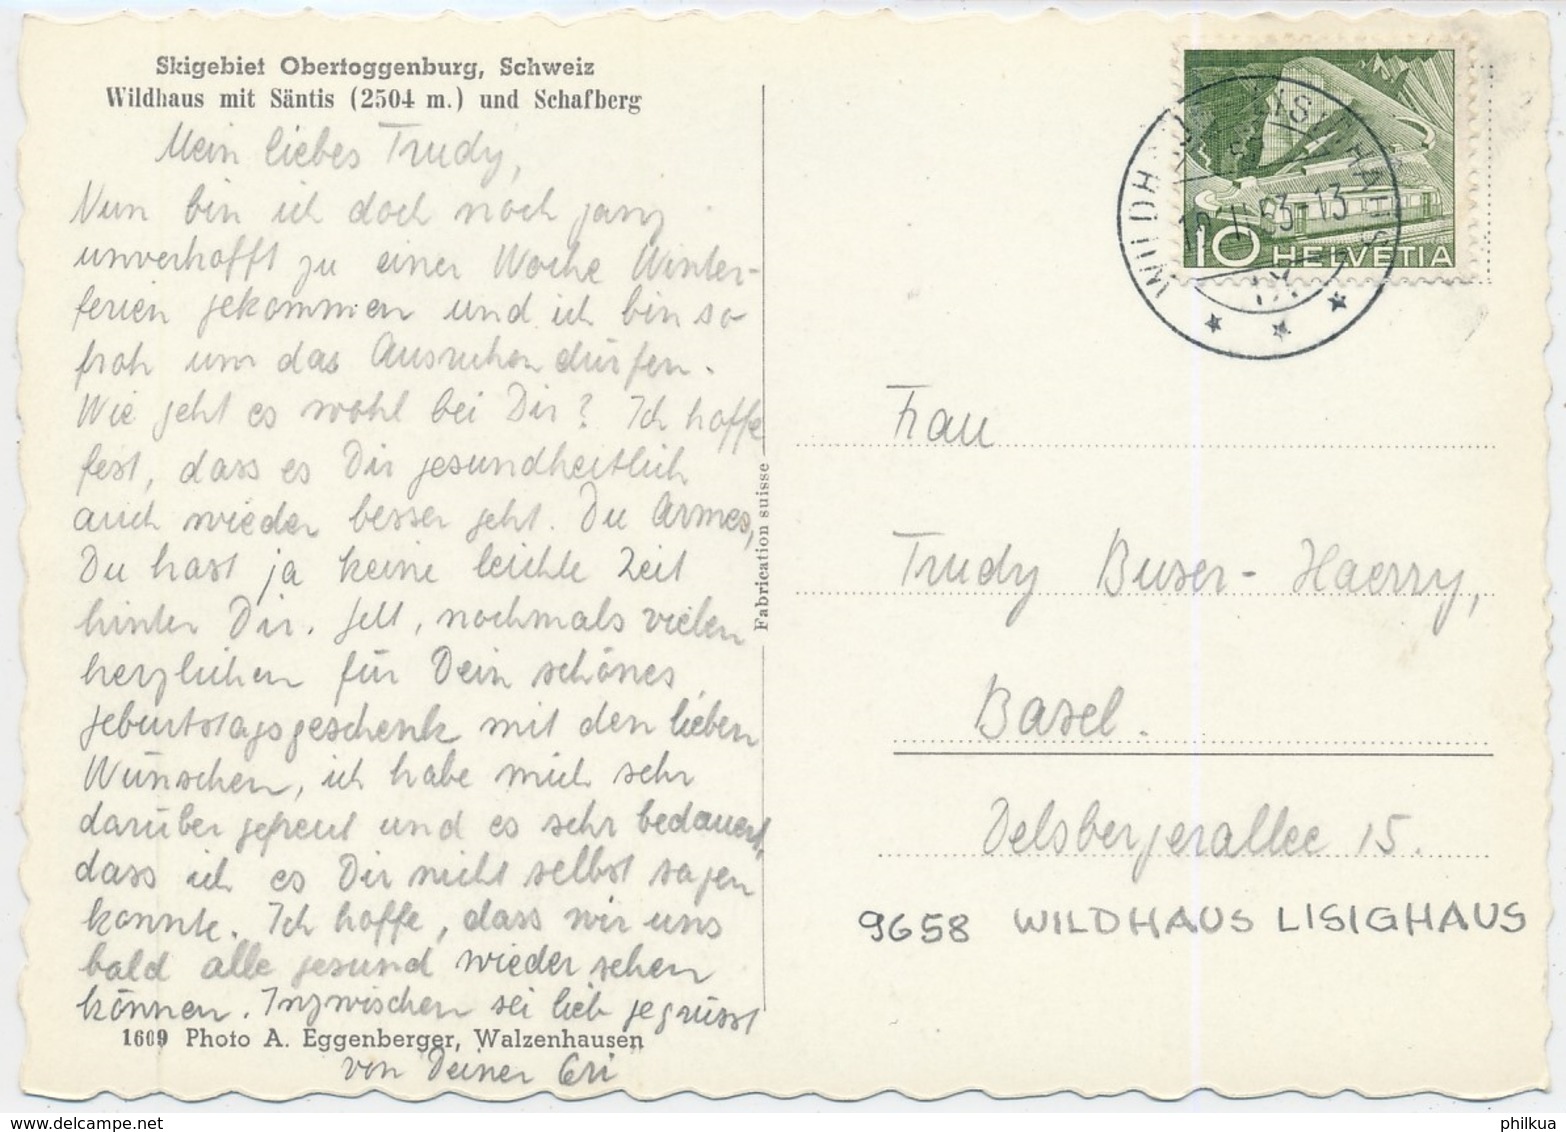 Skigebiet Obertoggenburg, Schweiz
Wildhaus mit Säntis (2504 m.) und Schafberg
Mein liebes Trudy,
Nun bin ich doch noch ganz
unverhofft zu einer Woche Winter-
ferien gekommen und ich bin so
froh um das Ausruhen dürfen.
Wie geht es wohl bei Dir? Ich hoffe
fest, dass es Dir gesundheitlich
auch wieder besser geht. Du Armes,
Du hast ja keine leichte Zeit
hinter Dir. Gell, nochmals vielen
herzlichen für Dein schönes
Geburtstagsgeschenk mit den lieben
Wünschen, ich habe mich sehr
darüber gefreut und es sehr bedauert,
dass ich es Dir nicht selbst sagen
konnte. Ich hoffe, dass wir uns
bald alle gesund wieder sehen
können. Inzwischen sei lieb gegrüsst
1609 Photo A. Eggenberger, Walzenhausen
von Deiner Eri
Fabrication suisse
10 HELVETIA
Frau
Trudy Buser-Haerry,
Basel.
Delsbergerallee 15.
9658 WILDHAUS LISIGHAUS
www.delcampe.net
philkua